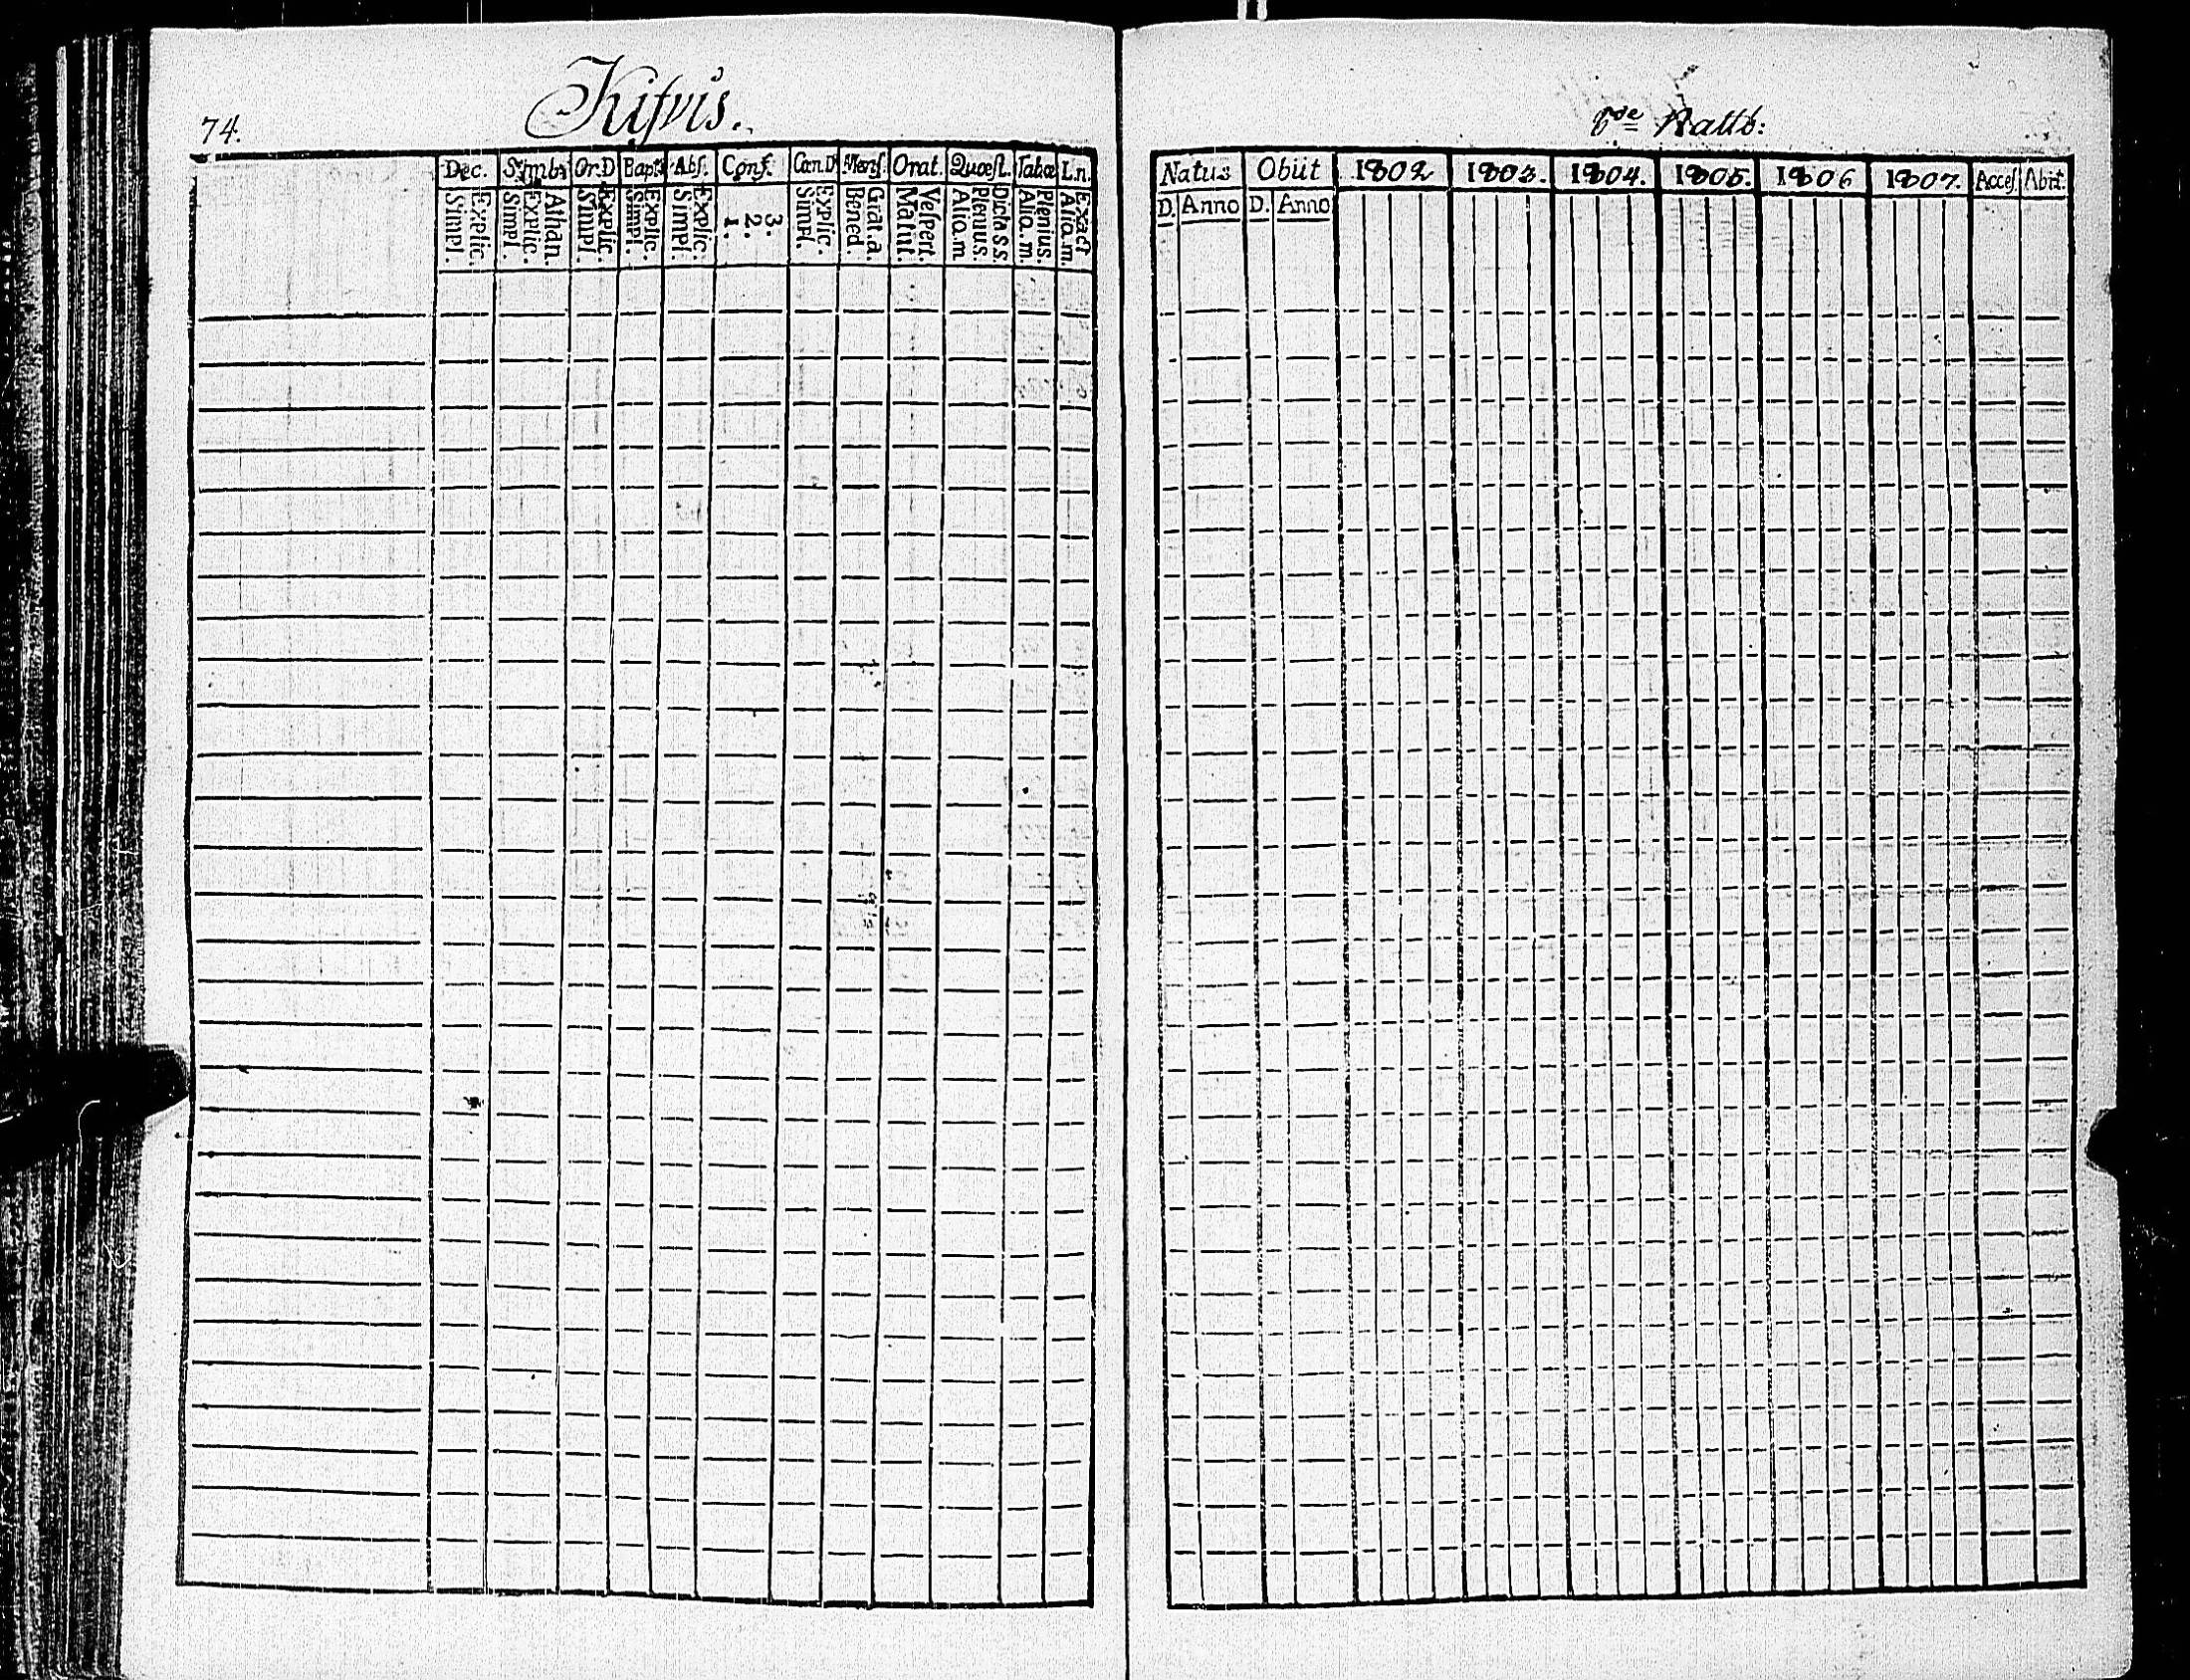 74.
Kiſvis.
Dec. Simb. Or.D Bapt. Abſ. Conf. Can.D Menſ. Orat. Quœſt. Tabœ L.n.
Explic. Simpl.
Athan. Explic. Simpl.
Explic. Simpl.
Explic. Simpl.
Explic. Simpl.
3. 2. 1.
Explic. Simpl.
Grat.a. Bened.
Veſpert. Matut.
Dicta S.S. Plenius. Alio.m
Plenius. Alio.m.
Exact Alio.m.
Rallb:
Natus Obiit 1802 1803. 1804. 1805. 1806 1807. Acceſ. Abit.
D. Anno D. Anno